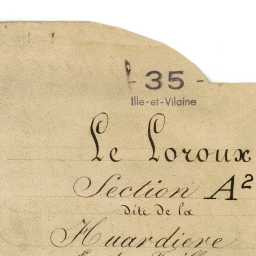 - 35 -
Ille-et-Vilaine
Le Loroux
Section A2
dite de la
Huardiere